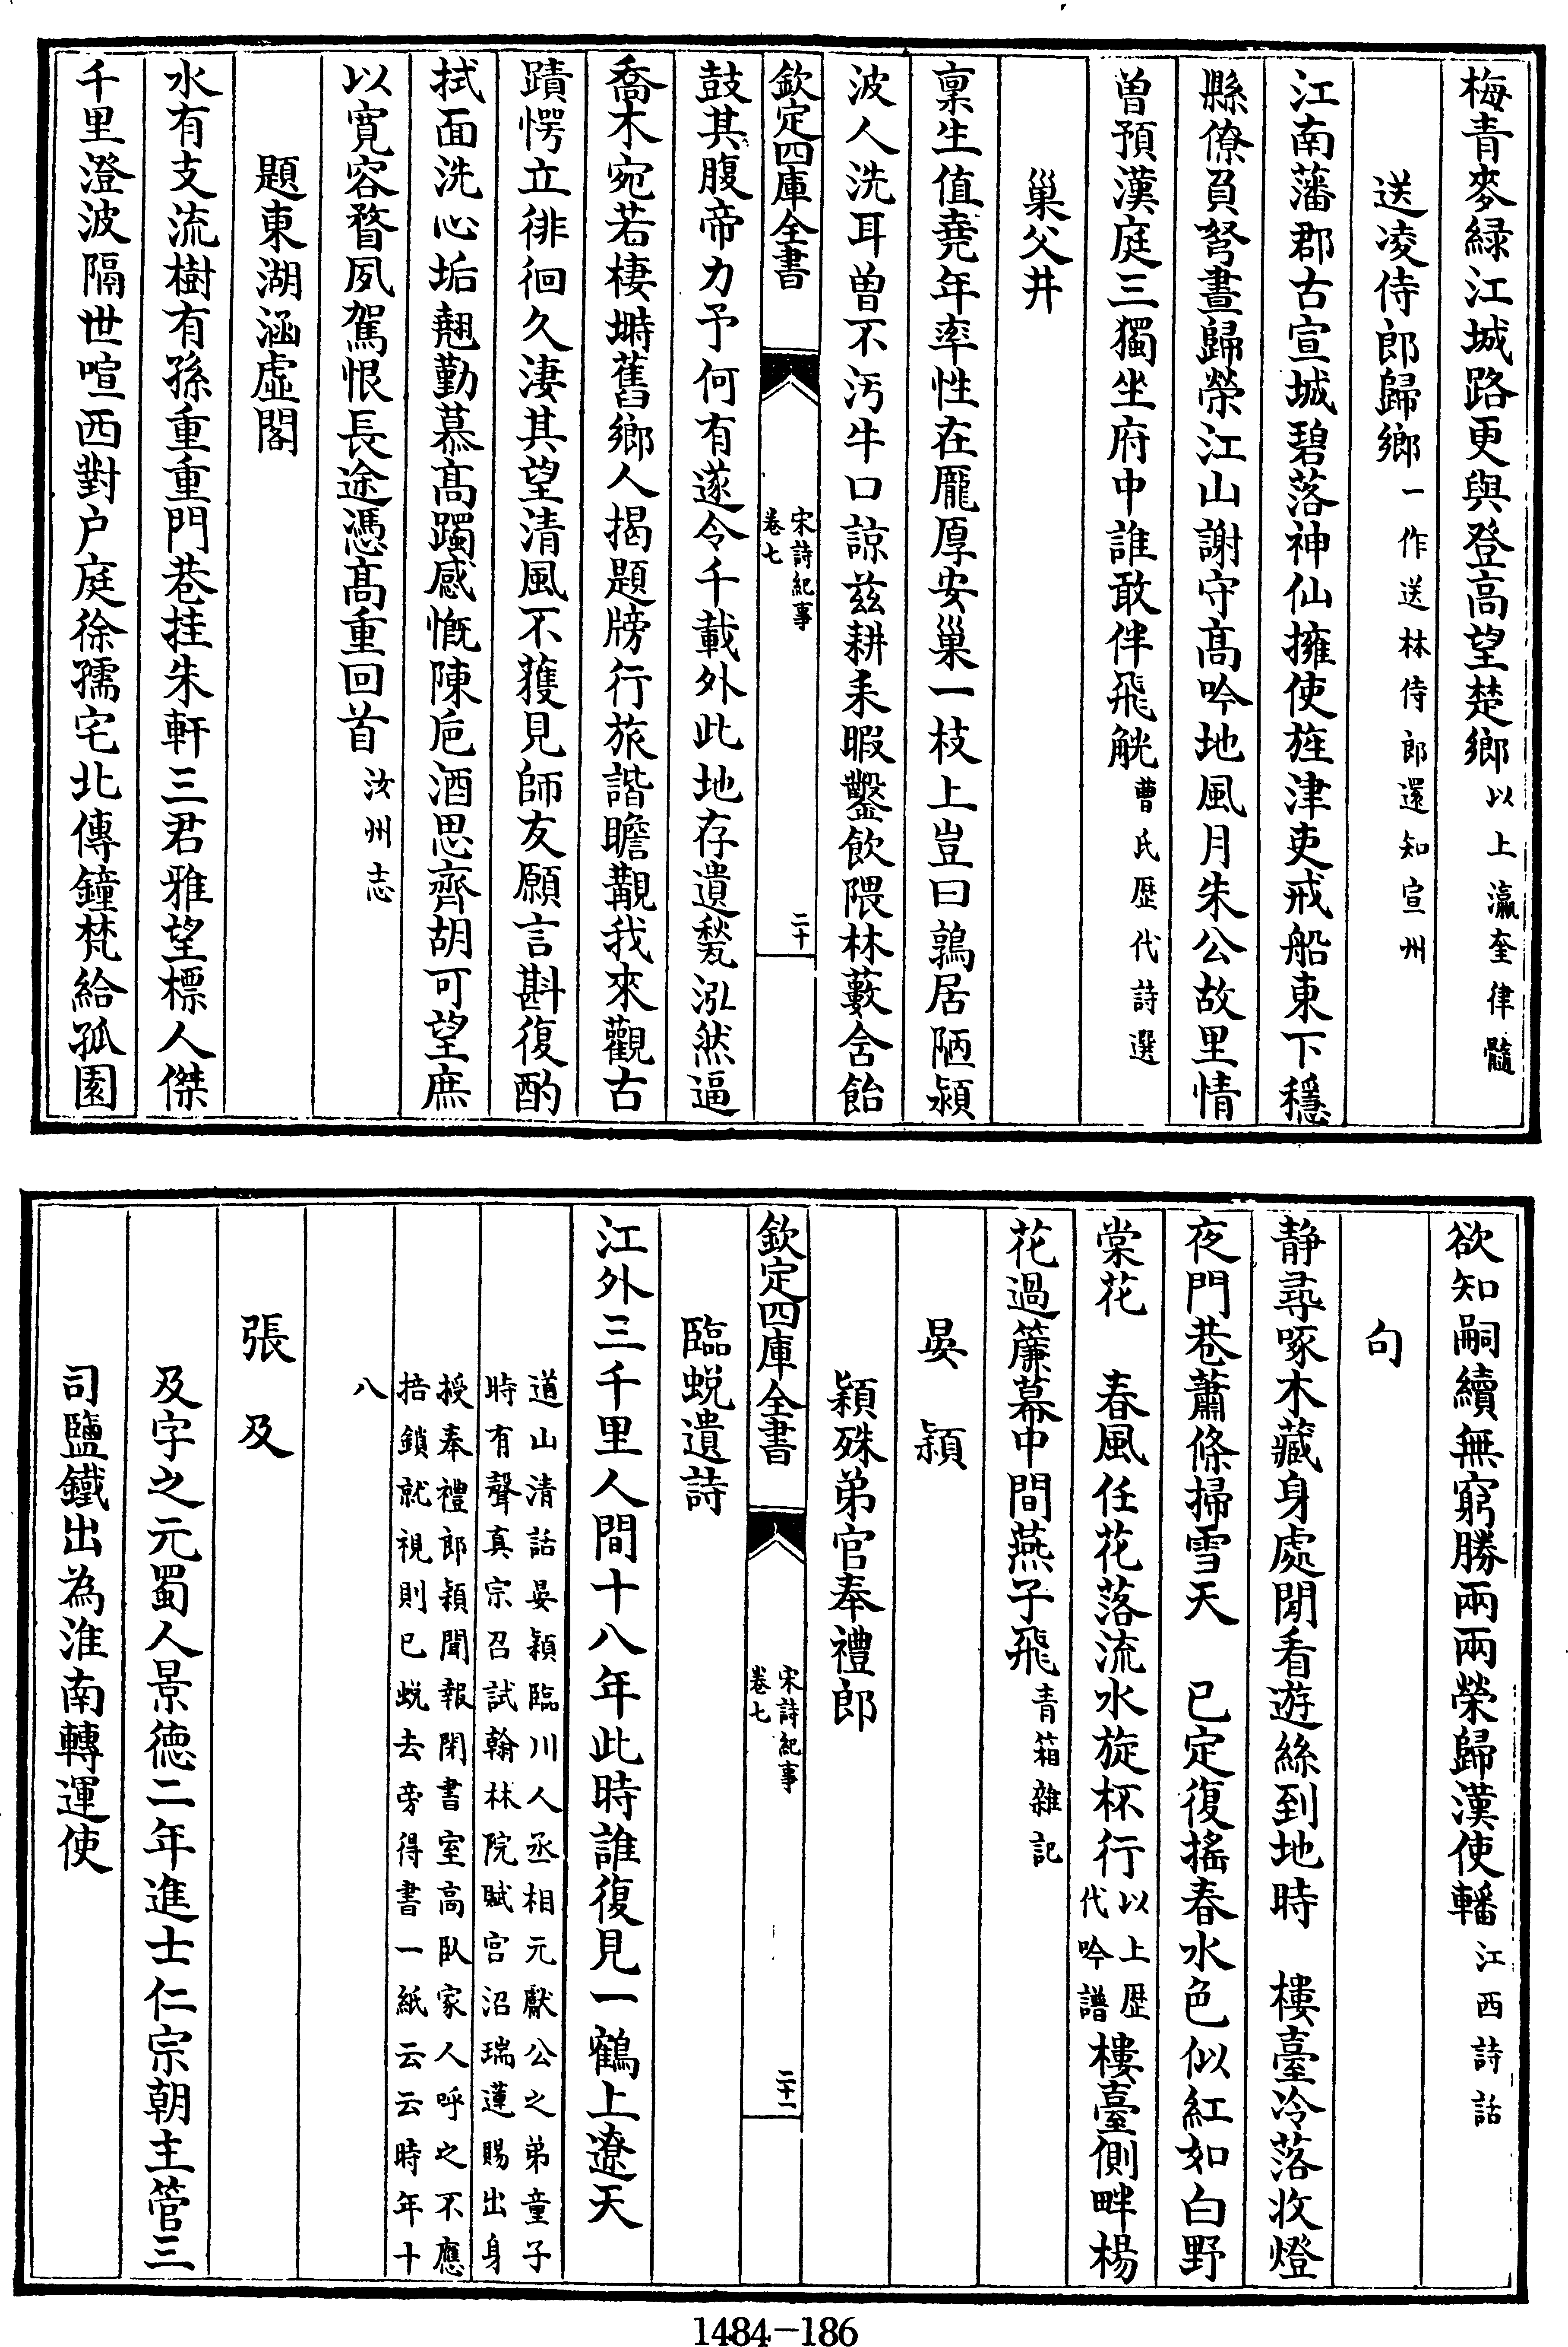 梅青麥緑江城路更與登高望楚鄉以上瀛奎律髓
送凌侍郎歸鄉一作送林侍郎還知宣州
江南藩郡古宣城碧落神仙擁使旌津吏戒船東下穩
縣僚負弩晝歸榮江山謝守髙吟地風月朱公故里情
曽預漢庭三獨坐府中誰敢伴飛觥曹氏歴代詩選
巢父井
禀生值堯年率性在龎厚安巢一枝上豈曰鶉居陋潁
波人洗耳曽不汚牛口諒兹耕耒暇鑿飲隈林藪含飴
欽定四庫全書
宋詩紀事
卷七
二十
鼓其腹帝力予何有遂令千載外此地存遺甃泓然逼
喬木宛若棲塒舊鄉人揭題牓行旅諧瞻覯我來觀古
蹟愕立徘徊久淒其望清風不獲見師友願言斟復酌
拭面洗心垢翹勤慕髙躅感慨陳巵酒思齊胡可望庶
以寛容瞀夙駕恨長途憑髙重回首汝州志
題東湖涵虛閣
水有支流樹有孫重重門巷挂朱軒三君雅望標人傑
千里澄波隔世喧西對户庭徐孺宅北傳鐘梵給孤園
欲知嗣續無窮勝兩兩榮歸漢使轓江西詩話
句
静尋啄木藏身處閒看遊絲到地時　樓臺冷落收燈
夜門巷蕭條掃雪天　已定復搖春水色似紅如白野
棠花　春風任花落流水旋杯行以上歴代吟譜樓臺側畔楊
花過簾幕中間燕子飛青箱雜記
晏潁
穎殊弟官奉禮郎
欽定四庫全書
宋詩紀事
卷七
二十一
臨蜕遺詩
江外三千里人間十八年此時誰復見一鶴上遼天
道山清話晏穎臨川人丞相元獻公之弟童子
時有聲真宗召試翰林院賦宫沼瑞蓮賜出身
授奉禮郎穎聞報閉書室高臥家人呼之不應
掊鎖就視則已蜕去旁得書一紙云云時年十
八
張及
及字之元蜀人景徳二年進士仁宗朝主管三
司鹽鐵出為淮南轉運使
1484-186